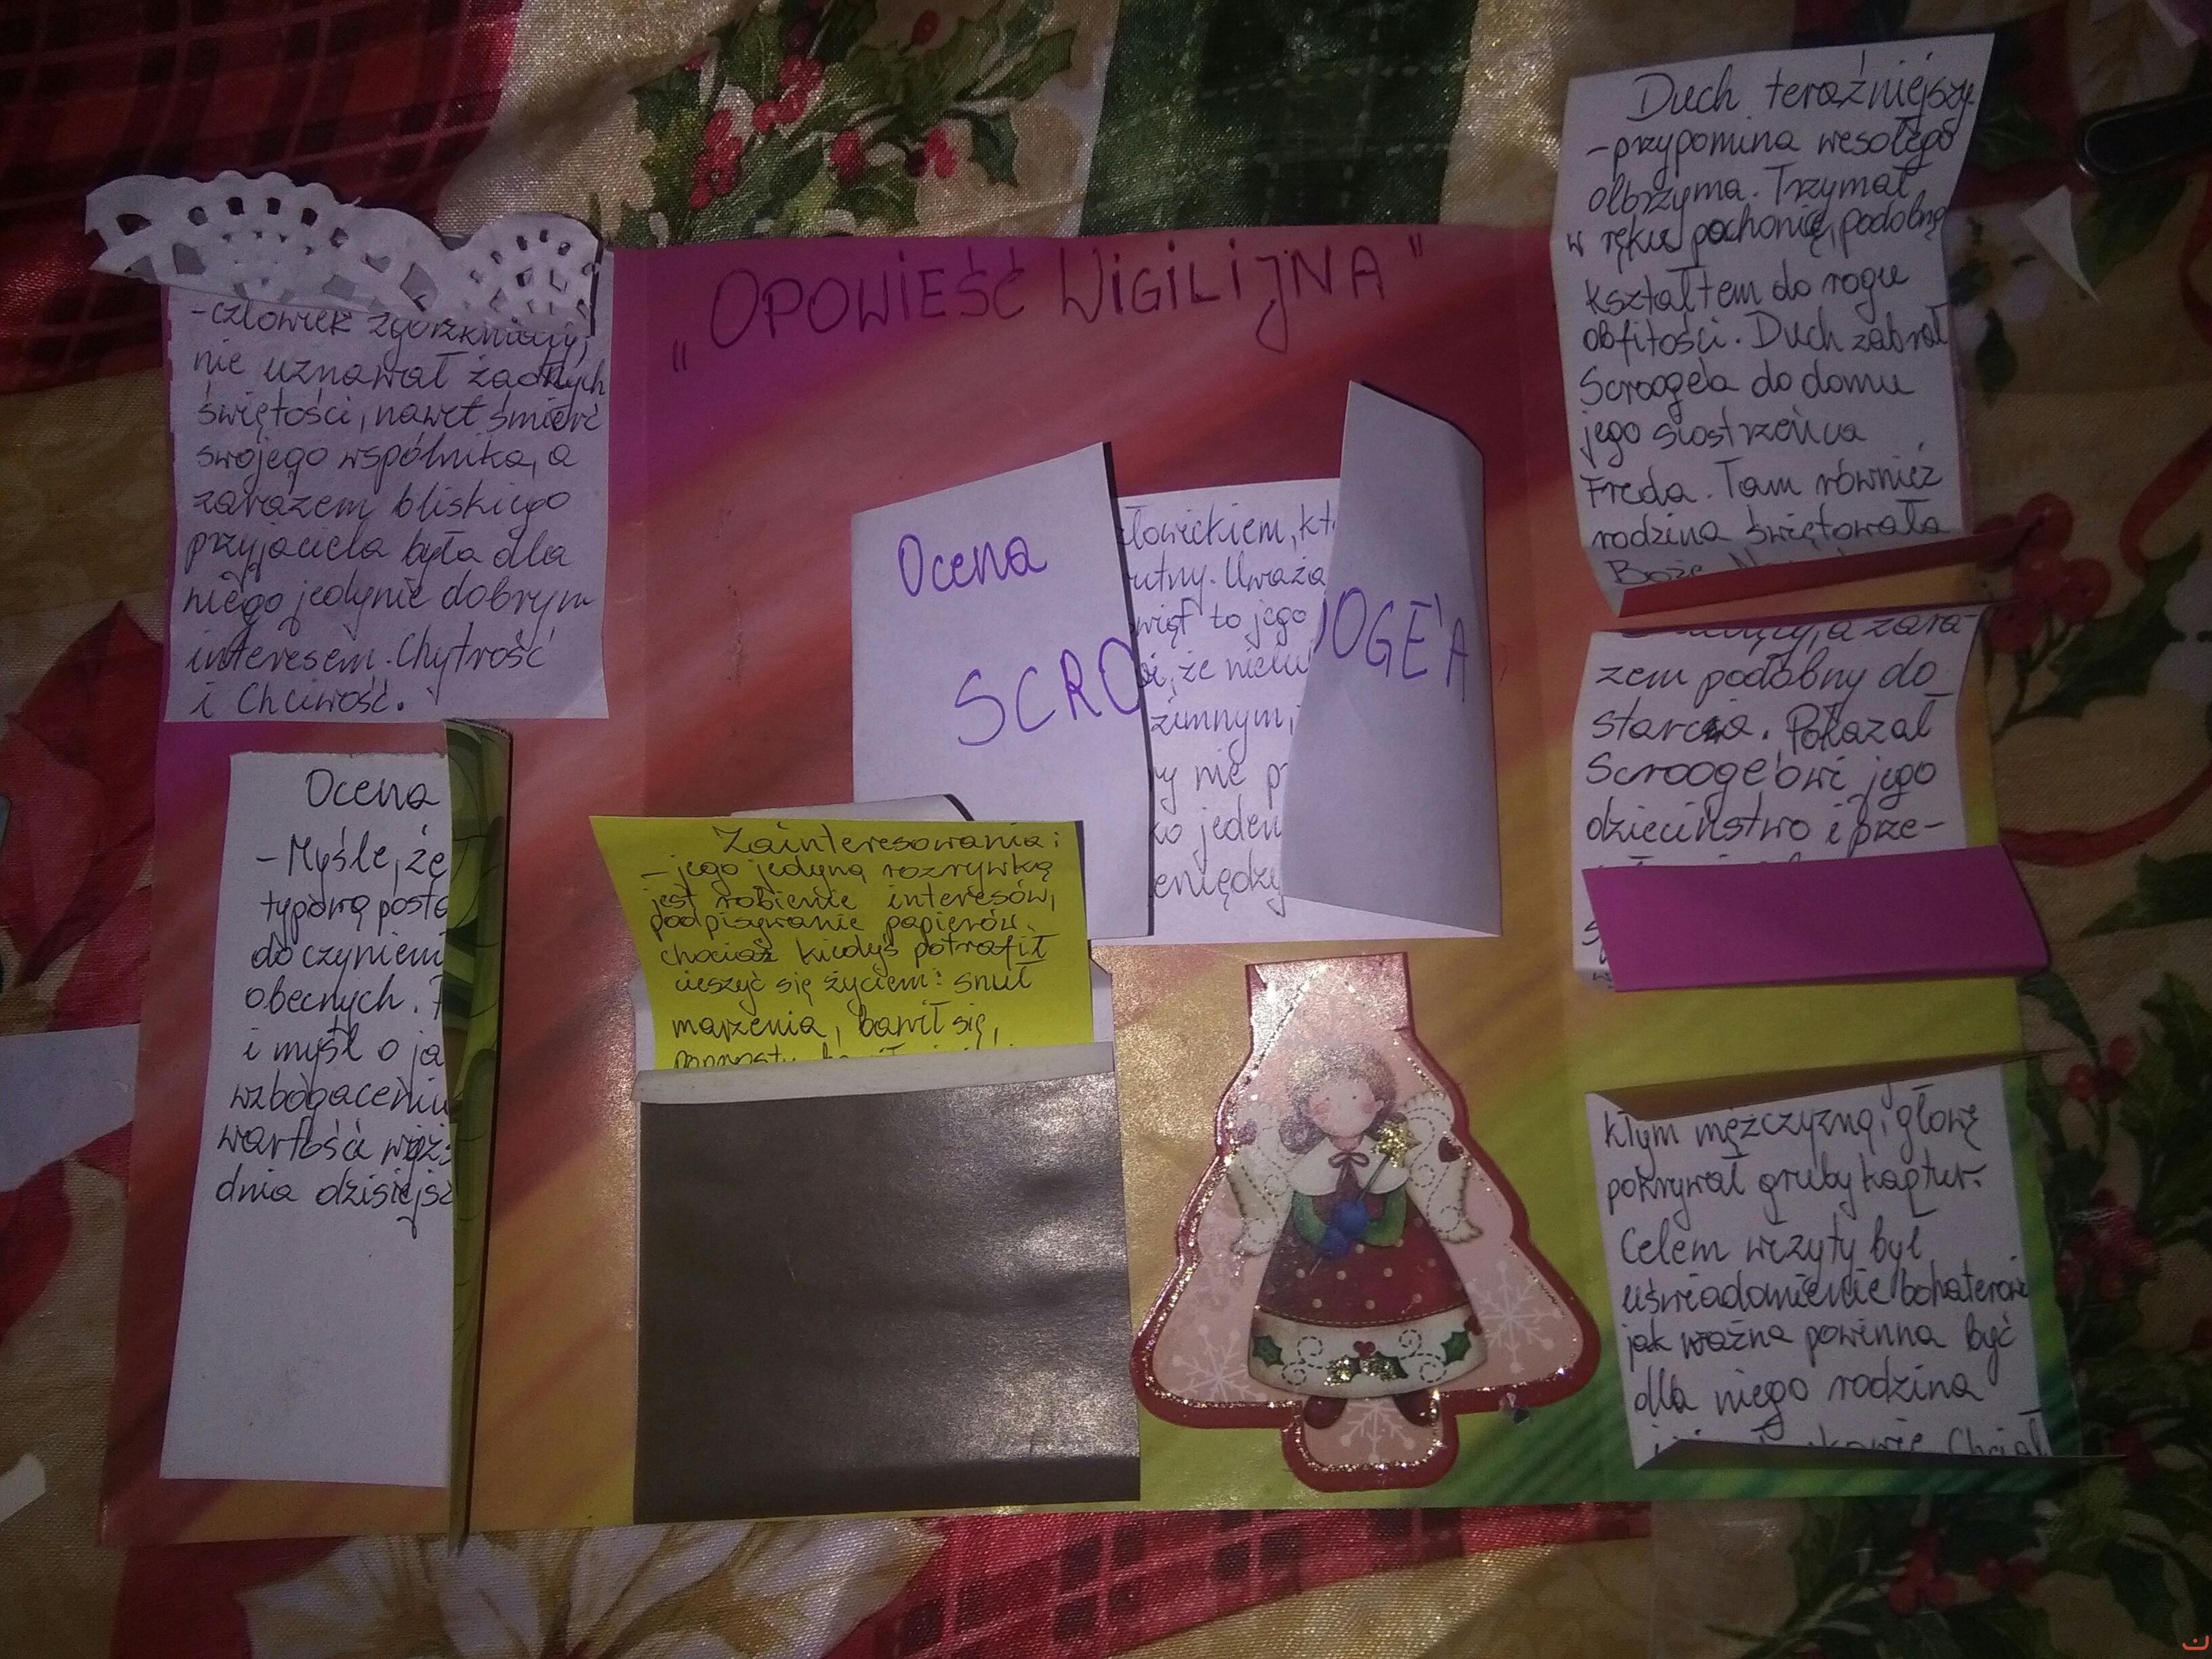 „OPOWIEŚĆ WIGILIJNA"
-człowiek zgorzkniały,
nie uznawał żadnych
świętości, nawet śmierć
swojego wspólnika, a
zarazem bliskiego
przyjaciela była dla
niego jedynie dobrym
interesem. Chytrość
i Chciwość.
Ocena
-Myślę, że
typową posta
do czynieni
obecnych.
i myśl o ja
wzbogaceniu
wartości
dnia dzisiejsz
Ocena
SCRO
OGE'A
łowiekiem, kt
utny. Uważa
wiąt to jego
i, że nielu
zimnym,
ry nie p
ko jeden
eniędzy
Zainteresowania:
-jego jedyną rozrywką
jest robienie interesów,
podpisywanie papierów.
chociaż kiedyś potrafił
cieszyć się życiem: snuł
marzenia, bawił się,
Duch teraźniejszy
-przypomina wesołego
olbrzyma. Trzymał
w ręku pochonię, podobną
kształtem do rogu
obfitości. Duch zabrał
Scrooge'a do domu
jego siostrzeńca
Freda. Tam również
rodzina świętowała
Boże
a zara-
zem podobny do
starca. Pokazał
Scrooge'owi jego
dzieciństwo i prze-
kłym mężczyzną, głowę
pokrywał gruby kaptur.
Celem wizyty był
uświadomienie bohaterowi
jak ważna powinna być
dla niego rodzina
Chciał